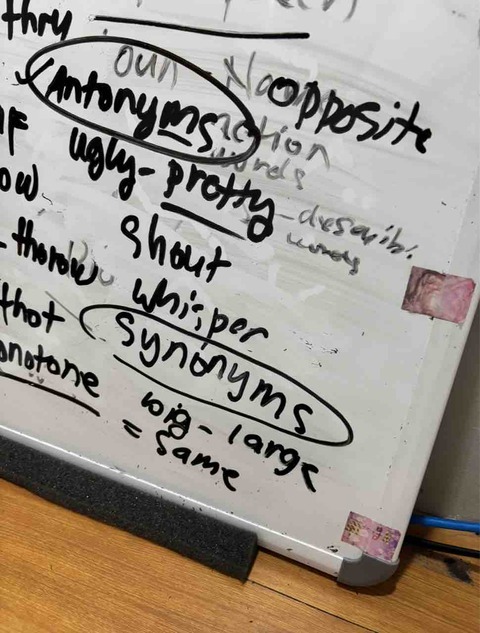 thru
oun - Noun
Antonyms opposite
action
words
ugly - pretty
describi.
words
shout
thorow
whisper
thot
synonyms
onotone
big - large
= same